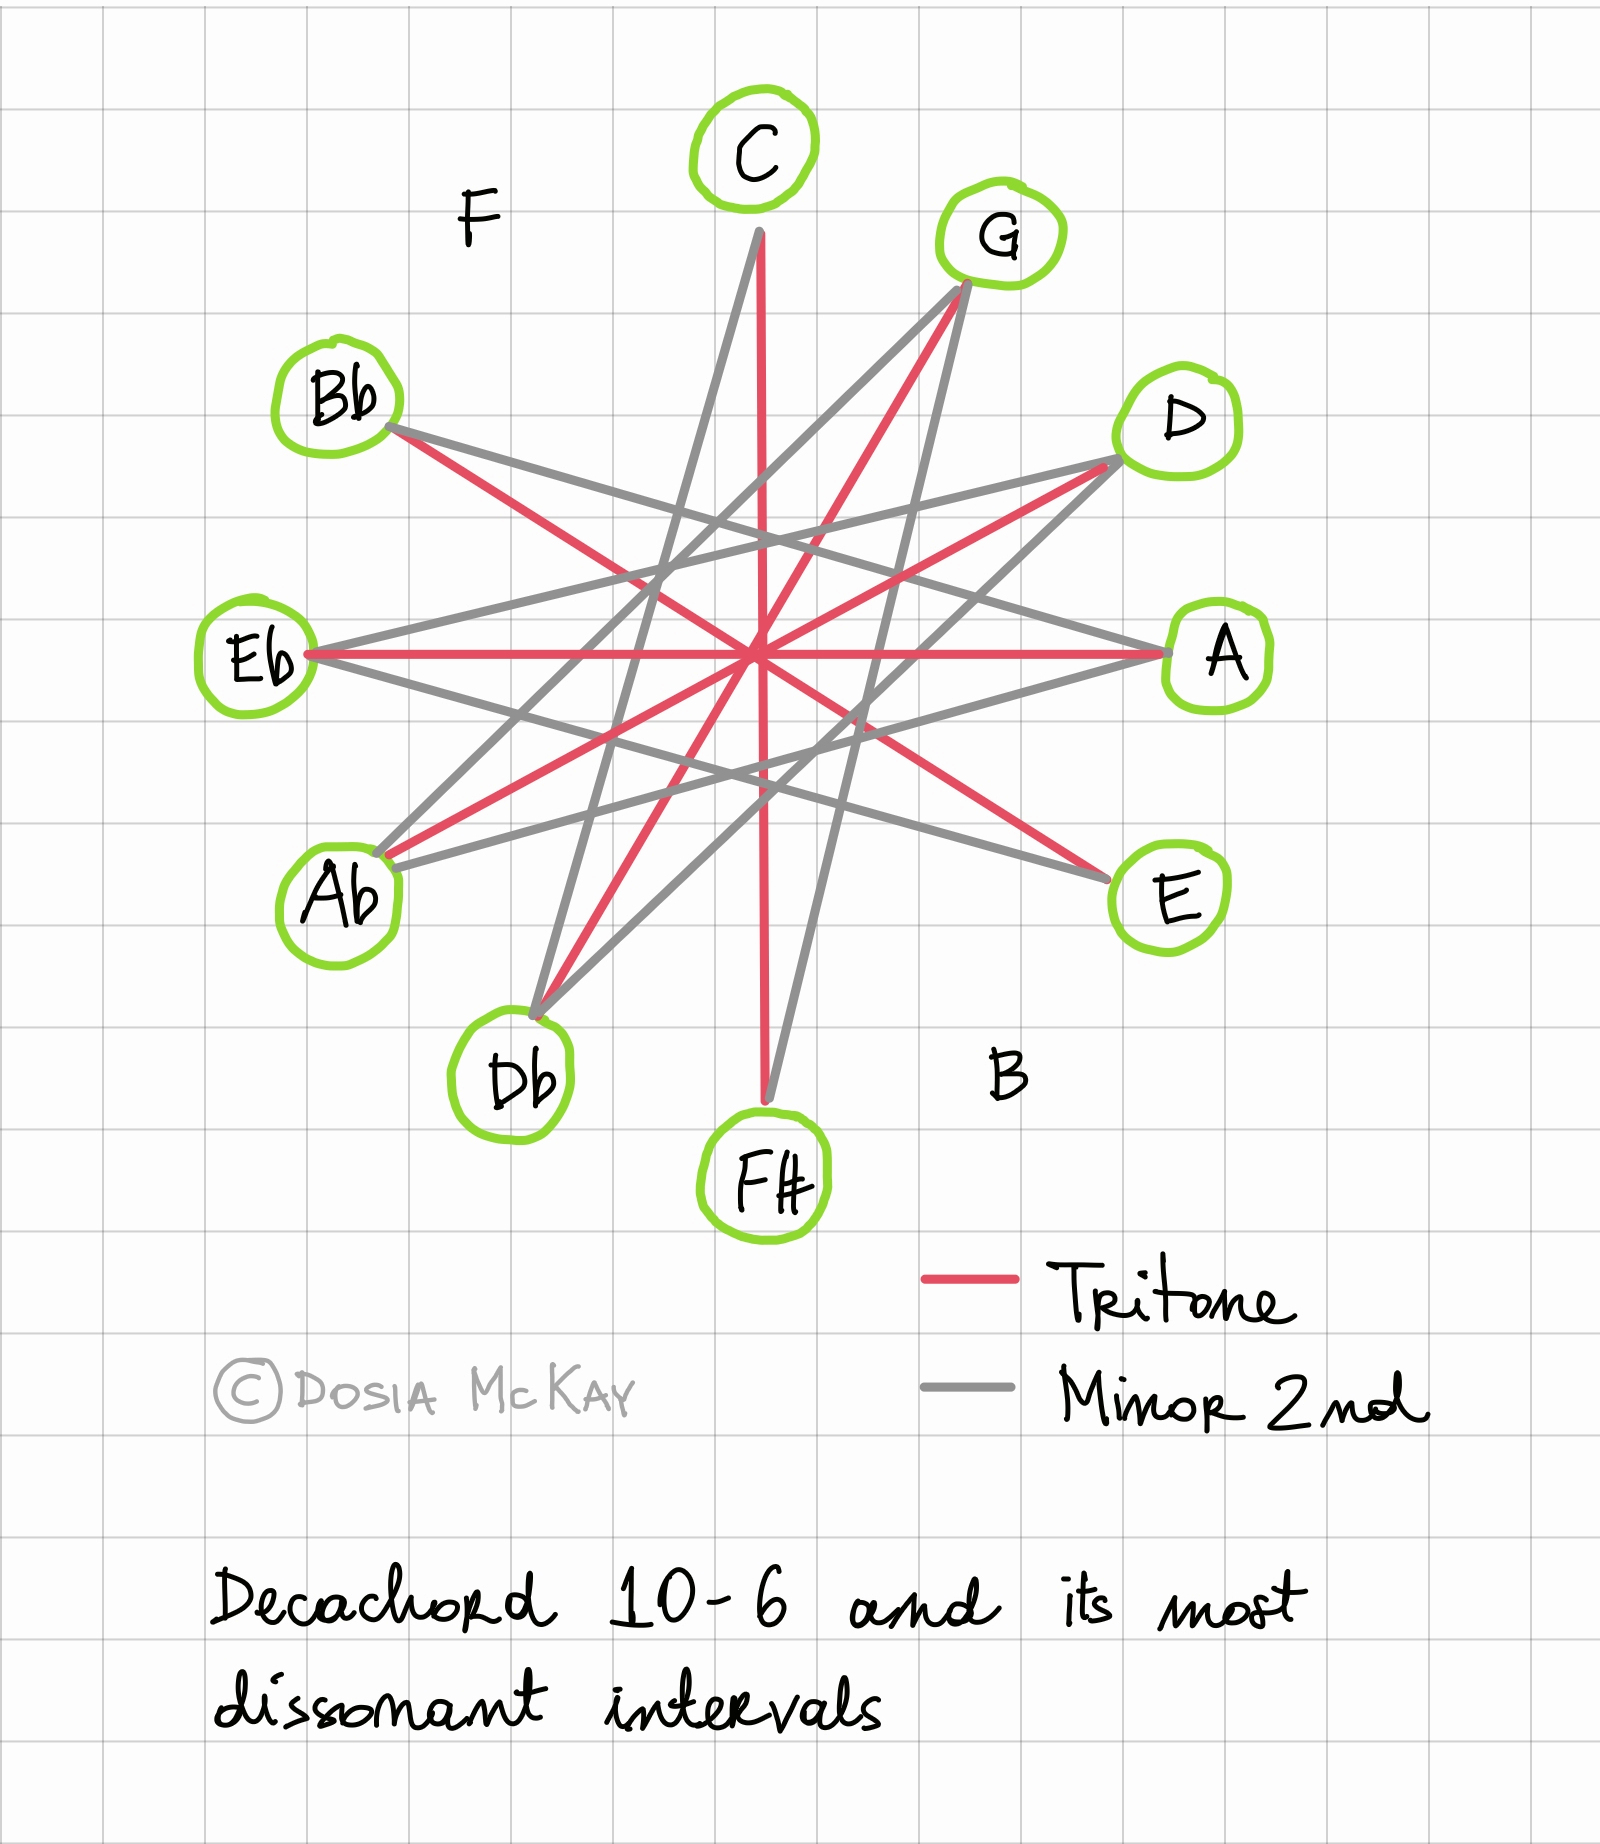 C
F
G
Bb
D
Eb
A
Ab
E
Db
B
F#
Tritone
© DOSIA MCKAY
Minor 2nd
Decachord 10-6 and its most
dissonant intervals